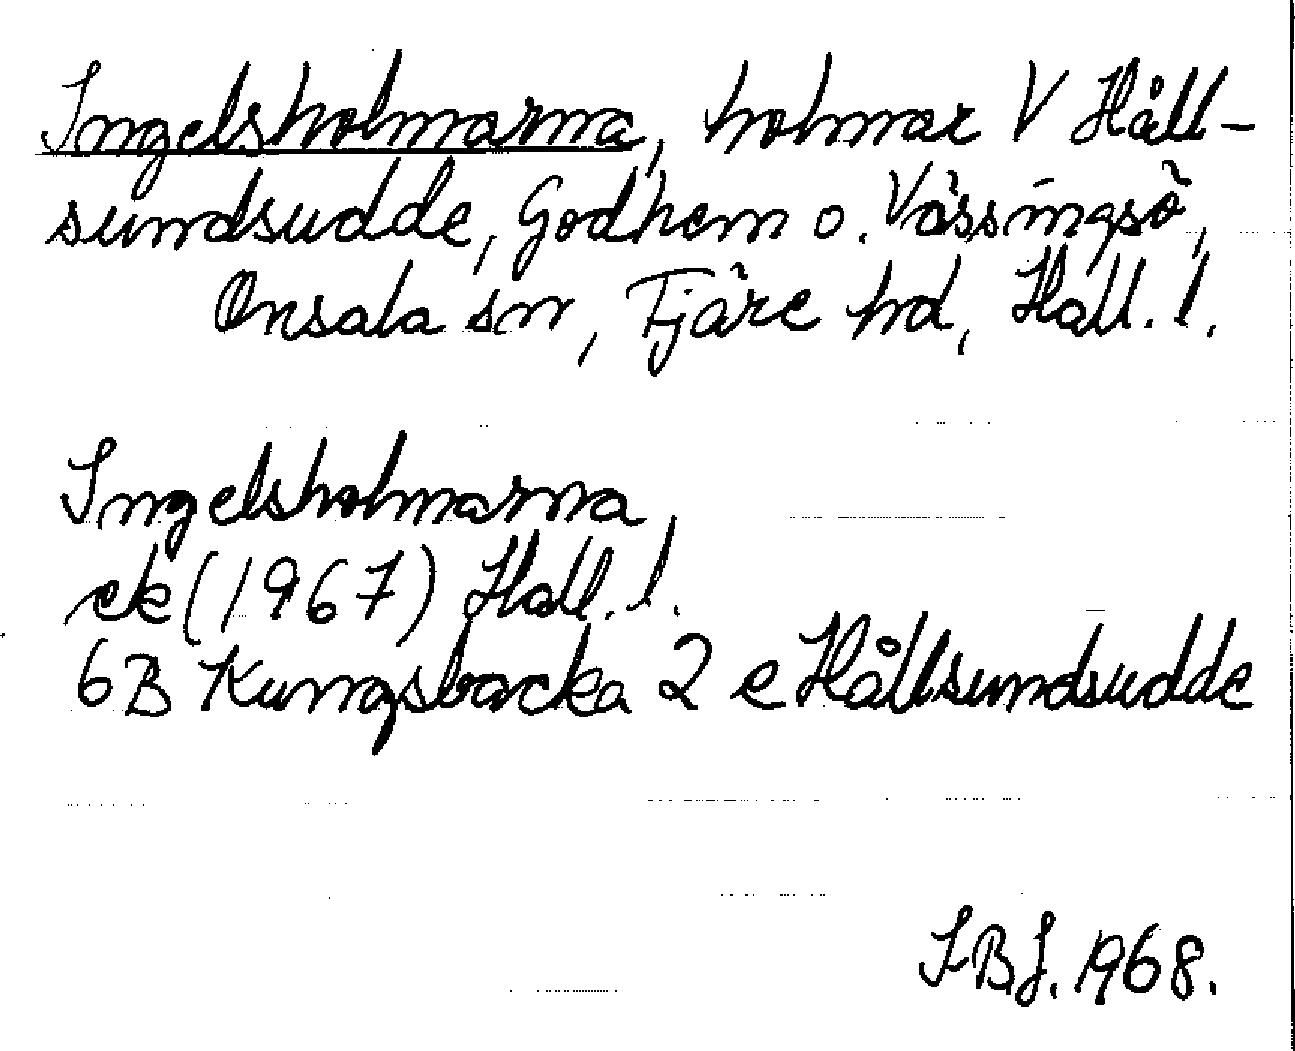 Ingelsholmarna, holmar V Håll-
sundsudde, Godhem o. Vässingsö,
Onsala sn, Fjäre hd, Hall. l.
Ingelsholmarna,
ek (1967) Hall. l.
6B Kungsbacka 2 e Hållsundsudde
SBJ. 1968.